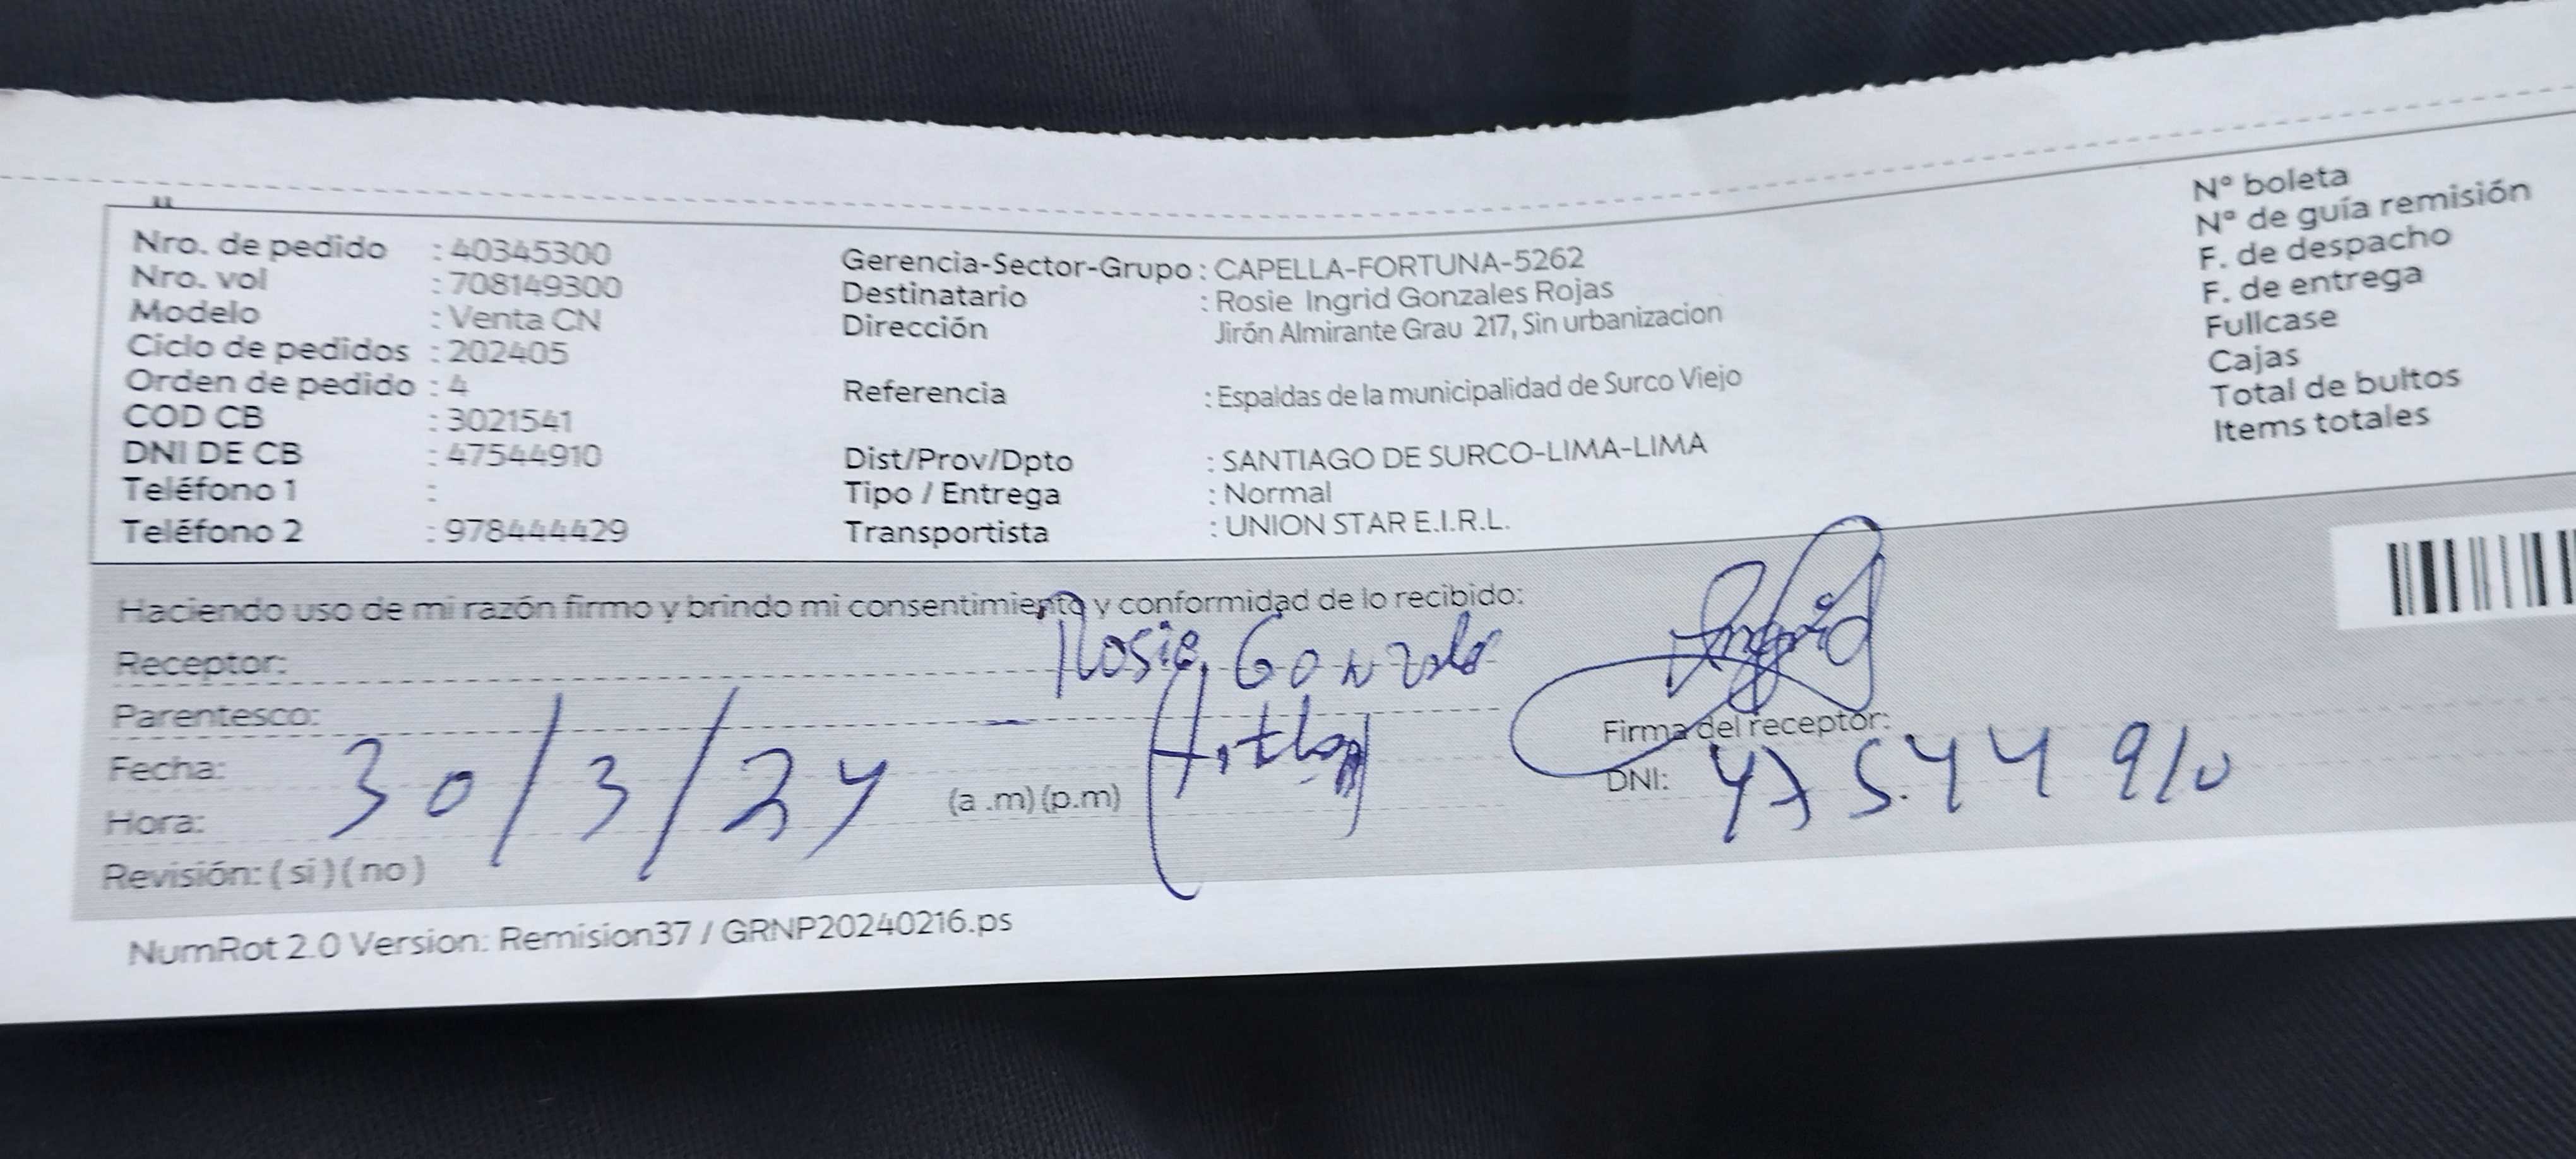 Nro. de pedido : 40345300
Nro. vol : 708149300
Modelo : Venta CN
Ciclo de pedidos : 202405
Orden de pedido : 4
COD CB : 3021541
DNI DE CB : 47544910
Teléfono 1 :
Teléfono 2 : 978444429
Gerencia-Sector-Grupo : CAPELLA-FORTUNA-5262
Destinatario : Rosie Ingrid Gonzales Rojas
Dirección Jirón Almirante Grau 217, Sin urbanizacion
Referencia : Espaldas de la municipalidad de Surco Viejo
Dist/Prov/Dpto : SANTIAGO DE SURCO-LIMA-LIMA
Tipo / Entrega : Normal
Transportista : UNION STAR E.I.R.L.
N° boleta
N° de guía remisión
F. de despacho
F. de entrega
Fullcase
Cajas
Total de bultos
Items totales
Haciendo uso de mi razón firmo y brindo mi consentimiento y conformidad de lo recibido:
Receptor: Rosie Gonzales
Parentesco:
Firma del receptor:
Fecha: 30/3/24
DNI: 47544910
Hora: (a .m) (p.m)
Revisión: ( si ) ( no )
NumRot 2.0 Version: Remision37 / GRNP20240216.ps